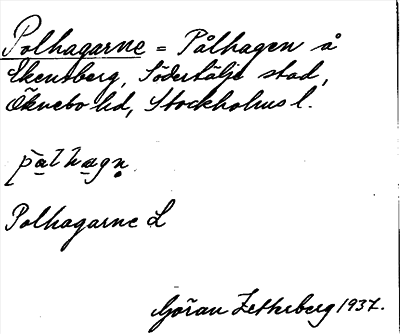 Polhagarne = Pålhagen å
Ekensberg, Södertälje stad,
Öknebo hd, Stockholms l.
pålhagn
Polhagarne L
Göran Zetherberg 1937.